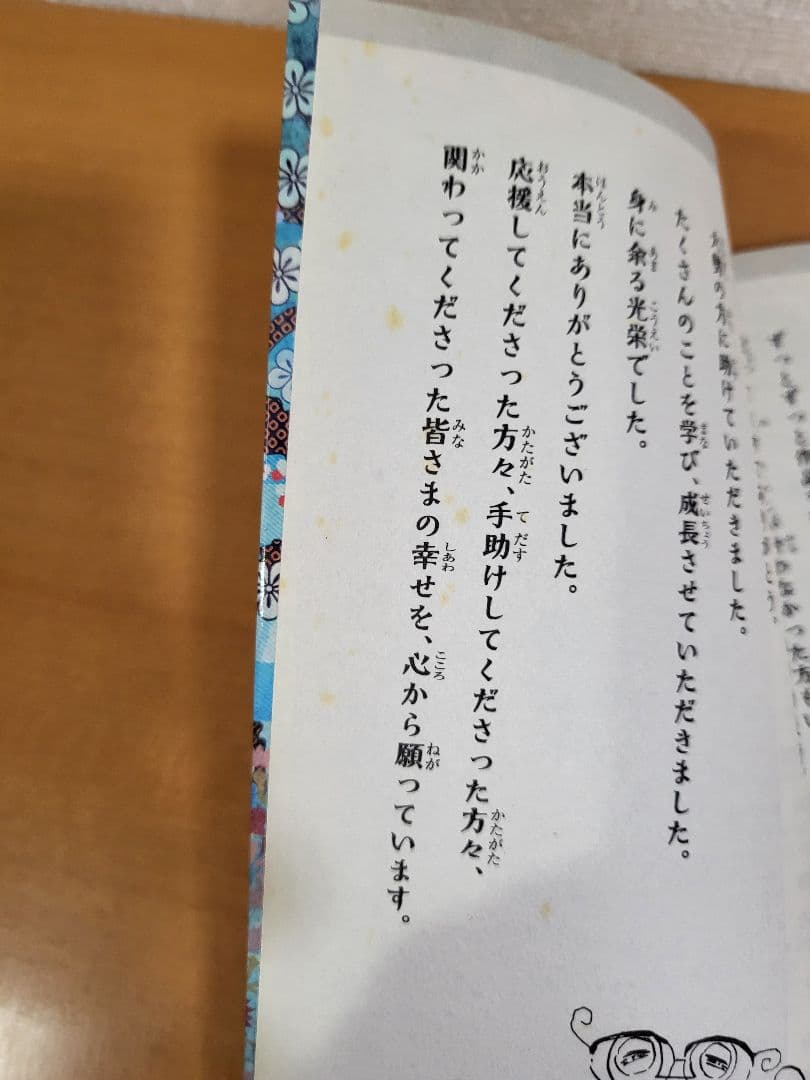 の方に助けていただきました。
たくさんのことを学び、成長させていただきました。
身に余る光栄でした。
本当にありがとうございました。
応援してくださった方々、手助けしてくださった方々、
関わってくださった皆さまの幸せを、心から願っています。